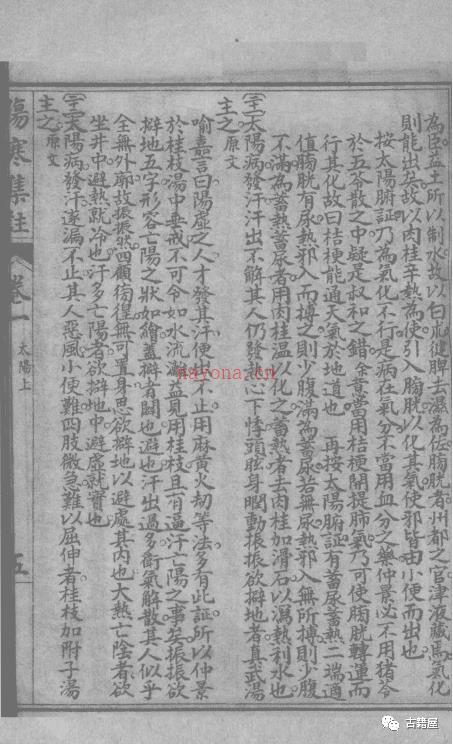 為臣益土所以制水故以白朮健脾去濕為佐膀胱者州都之官津液藏焉氣化
則能出矣故以肉桂辛熱為使引入膀胱以化其氣使邪皆由小便而出也
按太陽腑証乃為氣化不行是病在氣分不當用血分之藥仲景必不用猪苓
於五苓散之中疑是叔和之錯余嘗當用桔梗開提肺氣乃可使膀胱轉運而
行其化故曰桔梗能通天氣於地道也 再按太陽腑証有蓄尿蓄熱二端適
值膀胱有尿熱邪入而搏之則少腹滿為蓄尿若無尿熱邪入無所搏則少腹
不滿為蓄熱蓄尿者用肉桂溫以化之蓄熱者去肉桂加滑石以瀉熱利水也
太陽病發汗汗出不解其人仍發熱心下悸頭眩身瞤動振振欲擗地者真武湯
主之原文
喻嘉言曰陽虛之人才發其汗便出不止用麻黃火劫等法多有此証所以仲景
於桂枝湯中垂戒不可令如水流漓益見用桂枝且有逼汗亡陽之事矣振振欲
擗地五字形容亡陽之狀如繪蓋擗者闢也避也汗出過多衛氣解散其人似乎
全無外廓故振振然四顧徬徨無可置身思欲擗地以避處其內也大熱亡陰者欲
坐井中避熱就冷也汗多亡陽者欲擗地中避虛就實也
太陽病發汗遂漏不止其人惡風小便難四肢微急難以屈伸者桂枝加附子湯
主之原文
傷寒集註 卷一 太陽上 五
nayona.cn
古籍屋